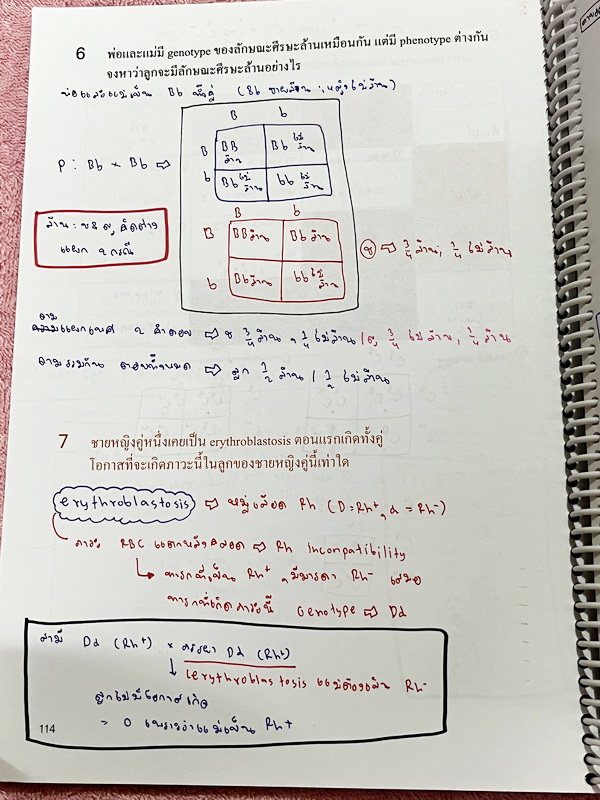 6 พ่อและแม่มี genotype ของลักษณะศีรษะล้านเหมือนกัน แต่มี phenotype ต่างกัน
จงหาว่าลูกจะมีลักษณะศีรษะล้านอย่างไร
พ่อและแม่เป็น Bb ทั้งคู่ (Bb ชายล้าน , หญิงไม่ล้าน)
B b
B BB ล้าน Bb ไม่ล้าน
P : Bb × Bb ⇨
b Bb ไม่ล้าน bb ไม่ล้าน
B b
ล้าน : ช & ญ คิดต่าง
แยก 2 กรณี
B BB ล้าน Bb ล้าน
ช ⇨ 3/4 ล้าน, 1/4 ไม่ล้าน
b Bb ล้าน bb ไม่ล้าน
ถาม
แยกเพศ 2 คำตอบ ⇨ ช 3/4 ล้าน , 1/4 ไม่ล้าน / ญ 3/4 ไม่ล้าน, 1/4 ล้าน
ถามรวมกัน ตอบทั้งหมด ⇨ ลูก 1/2 ล้าน / 1/2 ไม่ล้าน
7 ชายหญิงคู่หนึ่งเคยเป็น erythroblastosis ตอนแรกเกิดทั้งคู่
โอกาสที่จะเกิดภาวะนี้ในลูกของชายหญิงคู่นี้เท่าใด
erythroblastosis ⇨ หมู่เลือด Rh (D = Rh⁺, d = Rh⁻)
ภาวะ RBC แตกหลังคลอด ⇨ Rh Incompatibility
ทารกที่เป็น Rh⁺ , มีมารดา Rh⁻ เสมอ
ทารกที่เกิดภาวะนี้ Genotype ⇨ Dd
สามี Dd (Rh⁺) × ภรรยา Dd (Rh⁺)
erythroblastosis แม่ต้องเป็น Rh⁻
ลูกไม่มีโอกาสเกิด
= 0 เพราะว่าแม่เป็น Rh⁺
114